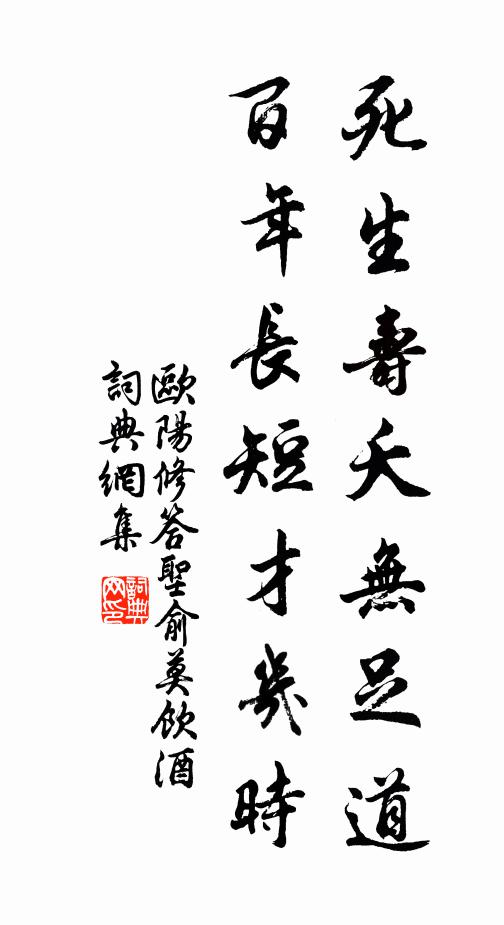 死生壽夭無足道
百年長短才幾時
歐陽修答聖俞莫飲酒
詞典網集
詞典
网印